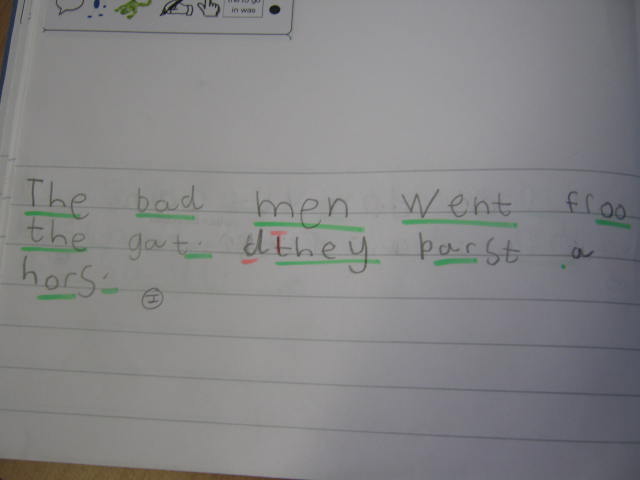 the to go
in was
The bad men Went froo
the gat. dthey parst a
hors.
I